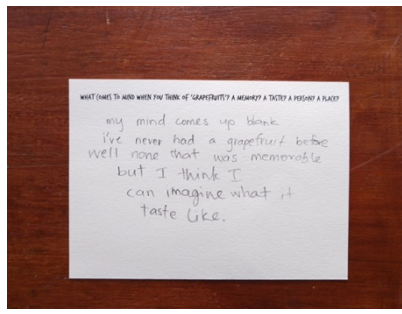 WHAT COMES TO MIND WHEN YOU THINK OF 'GRAPEFRUITS'? A MEMORY? A TASTE? A PERSON? A PLACE?
my mind comes up blank
i've never had a grapefruit before
well none that was memorable
but I think I
can imagine what it
taste like.